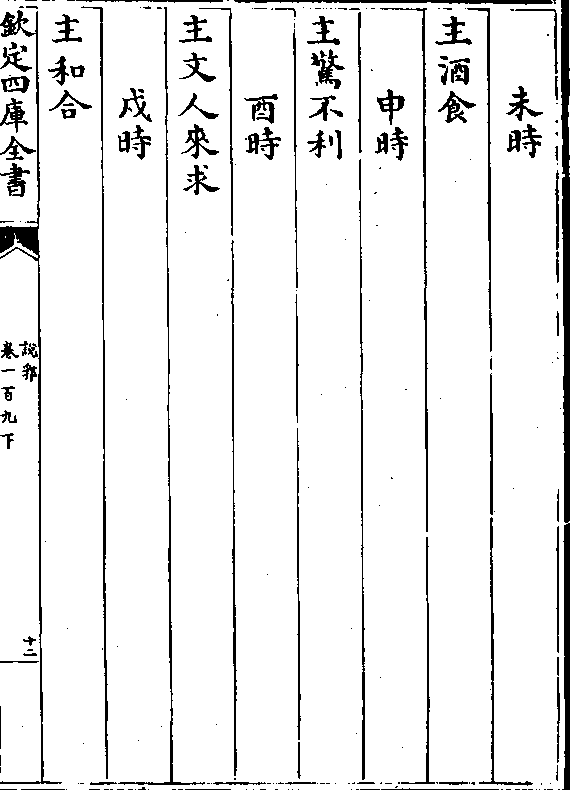 未時
主酒食
申時
主驚不利
酉時
主文人來求
戌時
主和合
欽定四庫全書
說郛
卷一百九下
十二